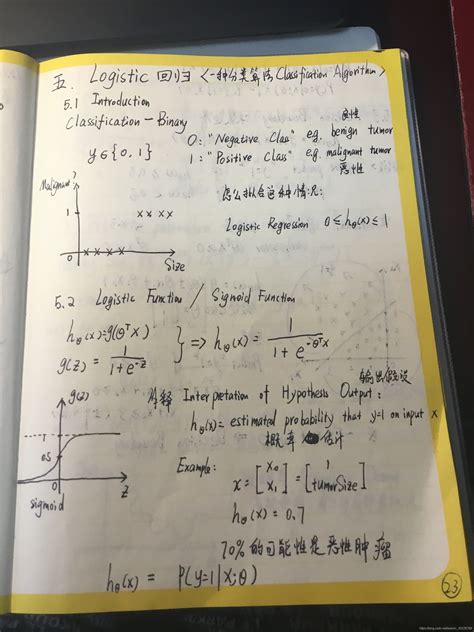 五. Logistic 回归 <一种分类算法 Classification Algorithm>
5.1 Introduction
Classification — Binary
y∈{0,1}
良性
0: "Negative Clas" e.g. benign tumor
1: "Positive Class" e.g. malignant tumor
恶性
Malignant?
1
0
Size
怎么拟合这种情况:
Logistic Regression 0≤hθ(x)≤1
5.2 Logistic Function / Sigmoid Function
hθ(x)=g(θᵀx)
g(z) = 1/(1+e^-z)
=> hθ(x) = 1/(1+e^-θᵀx)
g(z)
1
0.5
0
z
sigmoid
解释 Interpretation of Hypothesis Output:
hθ(x)= estimated probability that y=1 on input x
概率 估计
Example:
x = [x₀ x₁] = [1 tumorSize]
hθ(x) = 0.7
70%的可能性是恶性肿瘤
hθ(x) = P(y=1|x;θ)
23